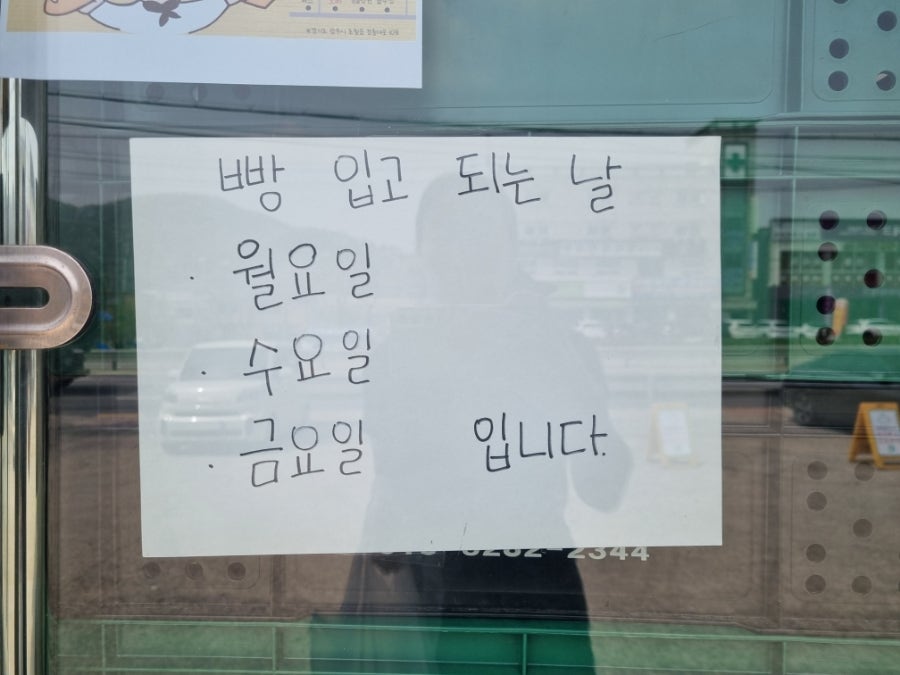 빵 입고 되는 날
· 월요일
· 수요일
· 금요일 입니다.
2344